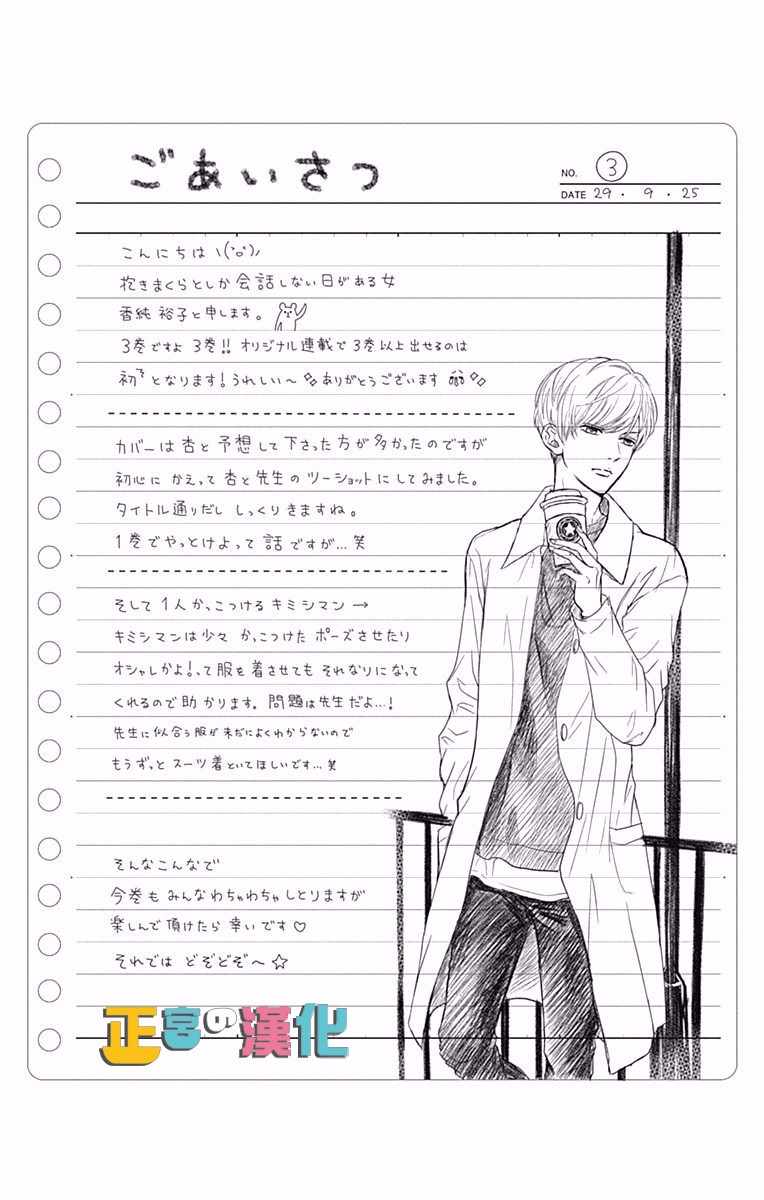 ごあいさつ
NO. ③
DATE 29・9・25
こんにちは ヽ(`o´)ノ
抱きまくらとしか会話しない日がある女
香純 裕子と申します。
3巻ですよ 3巻!! オリジナル連載で3巻以上出せるのは
初となります!うれしい〜 ありがとうございます
カバーは杏と予想して下さった方が多かったのですが
初心にかえって杏と先生のツーショットにしてみました。
タイトル通りだし しっくりきますね。
1巻でやっとけよって話ですが…笑
そして1人かっこつけるキミシマン→
キミシマンは少々かっこつけたポーズさせたり
オシャレかよ!って服を着させてもそれなりになって
くれるので助かります。問題は先生だよ…!
先生に似合う服が未だによくわからないので
もうずっとスーツ着といてほしいです…笑
そんなこんなで
今巻もみんなわちゃわちゃしとりますが
楽しんで頂けたら幸いです♡
それでは どぞどぞ〜☆
正宮の漢化